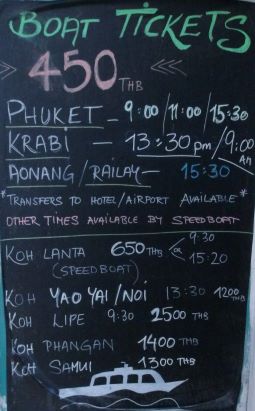 BOAT TICKETS
450 THB
PHUKET - 9:00/11:00/15:30
KRABI - 13:30 pm/9:00 AM
AONANG/RAILAY - 15:30
*TRANSFERS TO HOTEL/AIRPORT AVAILABLE*
OTHER TIMES AVAILABLE BY SPEEDBOAT
KOH LANTA 650 THB 9:30 OR 15:20
(SPEEDBOAT)
KOH YAO YAI/NOI 13:30 1200 THB
KOH LIPE 9:30 2500 THB
KOH PHANGAN 1400 THB
KOH SAMUI 1300 THB